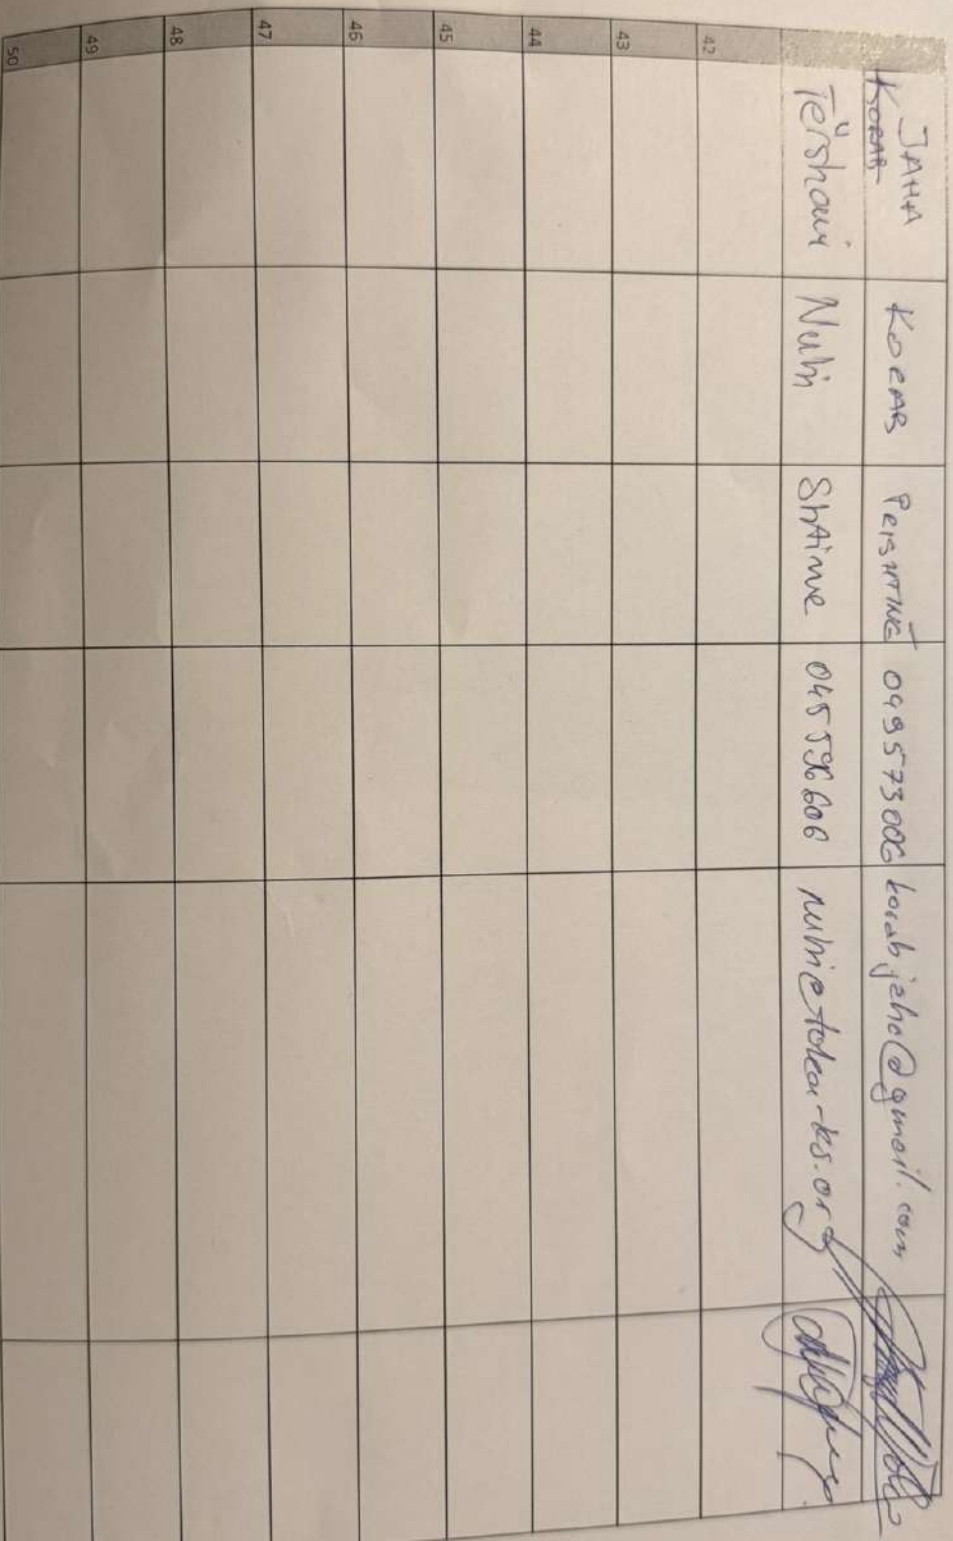 JAHA KORAB PRISHTINË 049573006 korab.jaha@gmail.com
KORAB
Tërshani Nuhi Shtime 045596606 nuhi@toka-ks.org
42
43
44
45
46
47
48
49
50